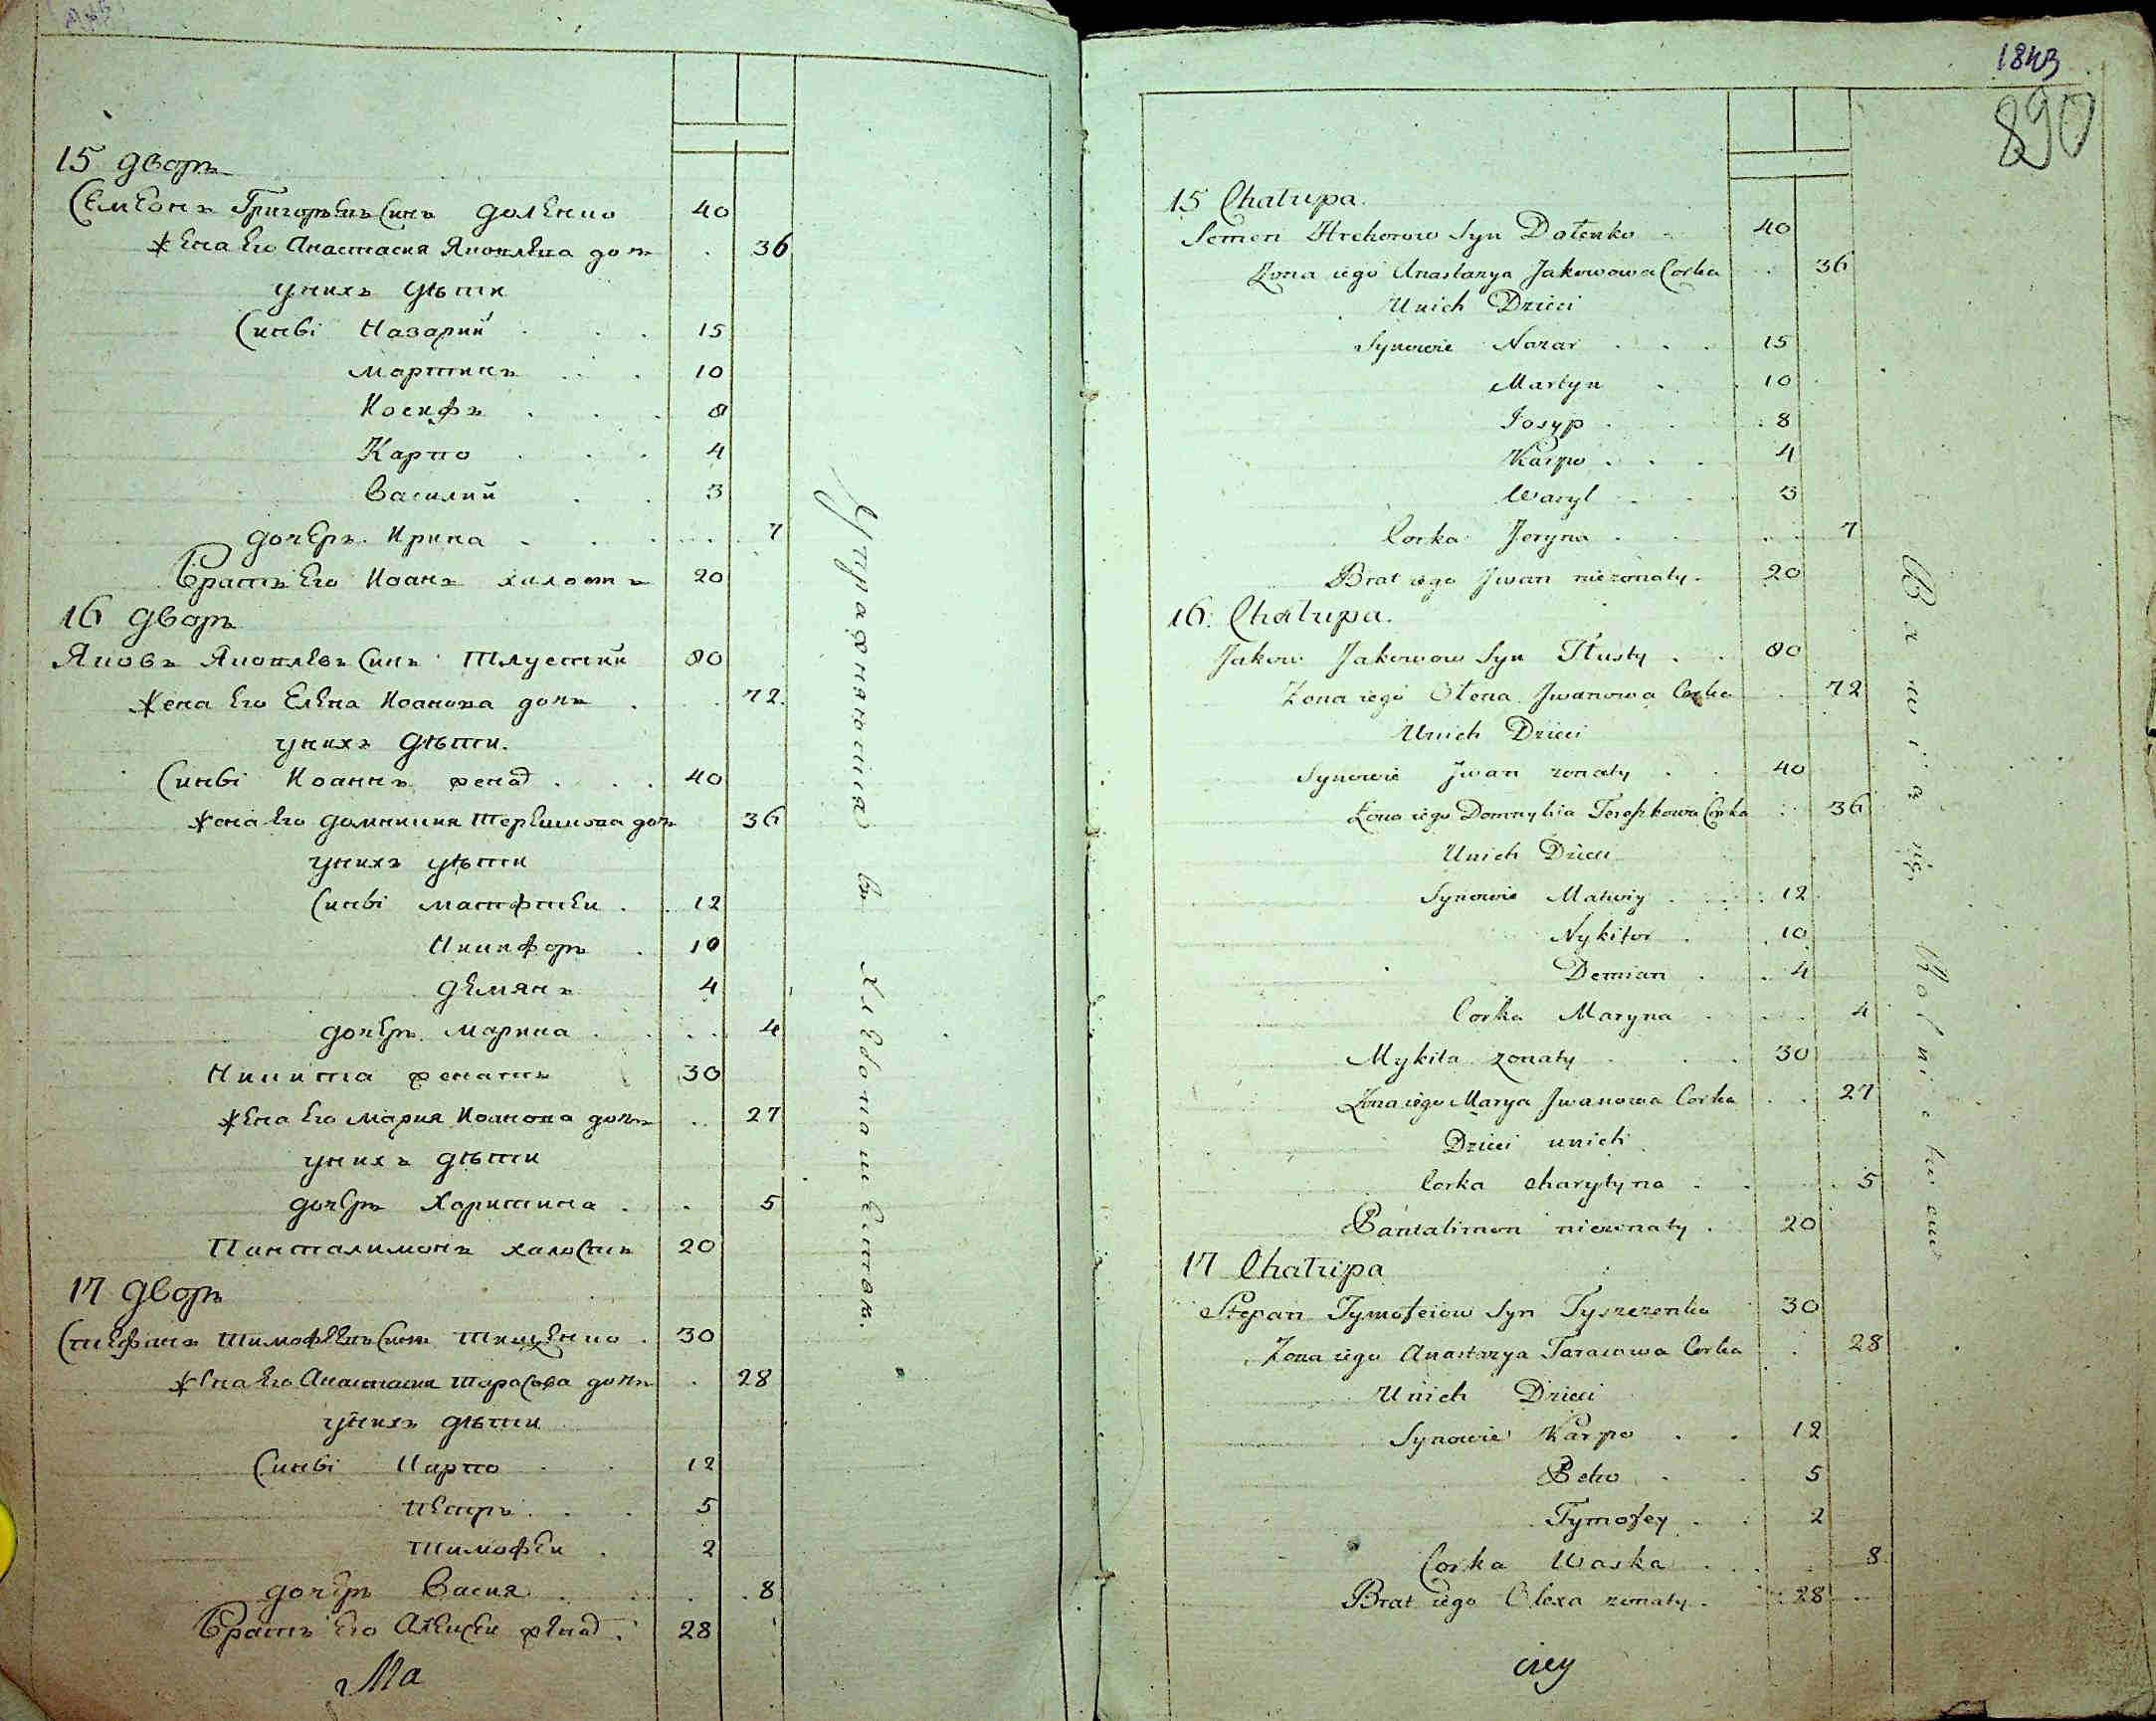 15 дворъ
Семеонъ Григорьевъ Синъ Доленко 40
жена Его Анастасия Яковлева дочь 36
у нихъ дѣти
Синві Назарий 15
Мартинъ 10
Иосифъ 8
Карпо 4
Василий 3
дочеръ Ирина 7
Братъ Его Иоанъ халостъ 20
16 дворъ
Яковъ Яковлевъ Синъ Тлустий 80
жена Его Елена Иоанова дочь 72
у нихъ дѣти.
Синві Иоаннъ женат 40
жена Его Домникия Терешкова дочь 36
у нихъ дѣти
Синві Матфтеи 12
Никифоръ 10
Демянъ 4
дочеръ Марина 4
Никита женатъ 30
жена Его Мария Иоанова дочь 27
у нихъ дѣти
дочеръ Харитина 5
Панталимонъ халостъ 20
17 дворъ
Стефанъ Тимофеевъ Синъ Тищенко 30
жена Его Анастасия Тарасова дочь 28
у нихъ дѣти
Синві Карпо 12
Петръ 5
Тимофеи 2
дочеръ Васия 8
Братъ Его Алексеи женат. 28
Ма
Упражняются въ Хлебопашестве.
1843
890
15 Chatupa.
Semen Hrehorow Syn Dołenko 40
Zona iego Anastazya Jakowowa Corka 36
Unich Dzieci
Synowie Nazar 15
Martyn 10
Josyp 8
Karpo 4
Wasyl 3
Corka Jeryna 7
Brat iego Jwan niezonaty. 20
16. Chatupa.
Jakow Jakowow Syn Tłusty 80
Zona iego Ołena Jwanowa Corka 72
Unich Dzieci
Synowie Jwan zonaty 40
Zona iego Domnykia Tereszkowa Corka 36
Unich Dzieci
Synowie Matwiy 12
Nykifor 10
Demian 4
Corka Maryna 4
Mykita zonaty 30
Zona iego Marya Jwanowa Corka 27
Dzieci unich
Corka Charytyna 5
Pantalimon niezonaty. 20
17 Chatupa
Stepan Tymofeiow Syn Tyszczenko 30
Zona iego Anastazya Tarasowa Corka 28
Unich Dzieci
Synowie Karpo 12
Petro 5
Tymofey 2
Corka Waska 8
Brat iego Olexa zonaty. 28
Bawią się Rolnictwem